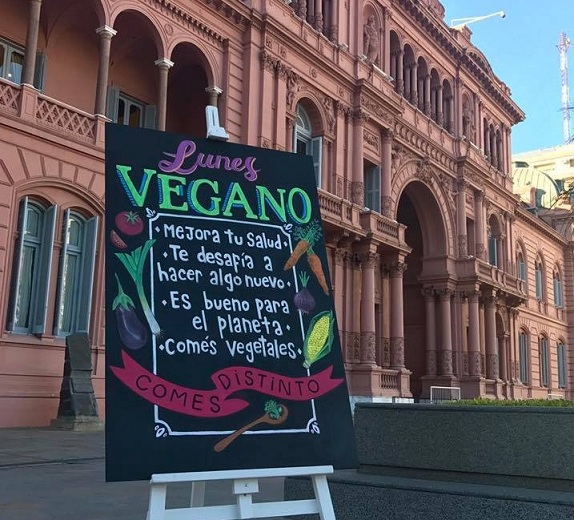 Lunes
VEGANO
• Mejora tu salud •
• Te desafía a
hacer algo nuevo •
• Es bueno para
el planeta •
• Comés vegetales •
COMES DISTINTO